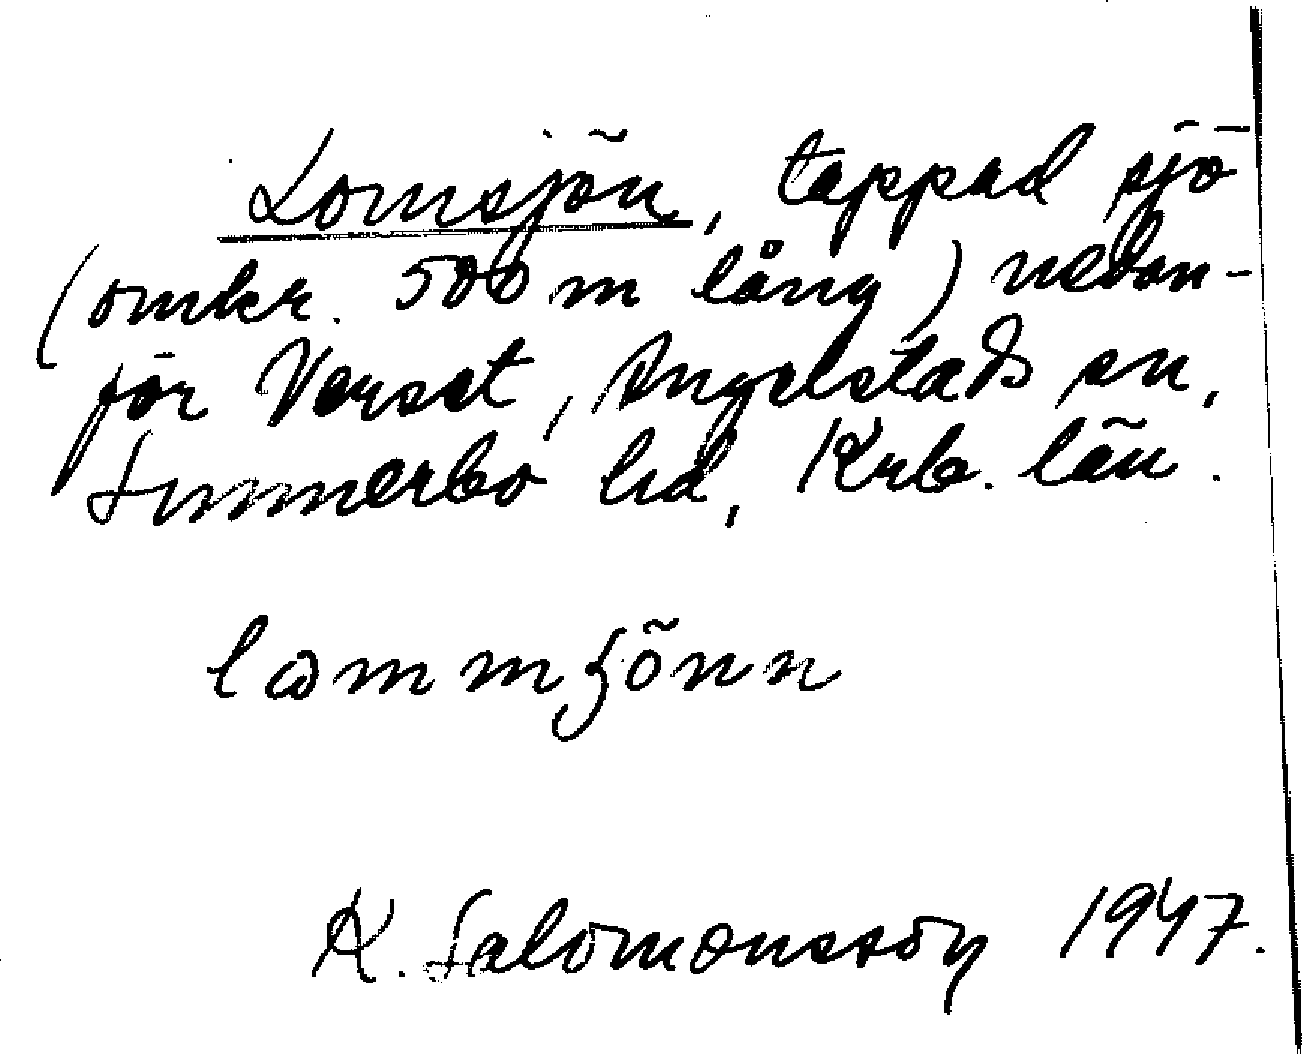 Lomsjön, tappad sjö
(omkr. 500 m lång) nedan-
för Verset, Angelstads sn,
Sunnerbo hd, Krb. län.
lammʃönn
K. Salomonsson 1947.